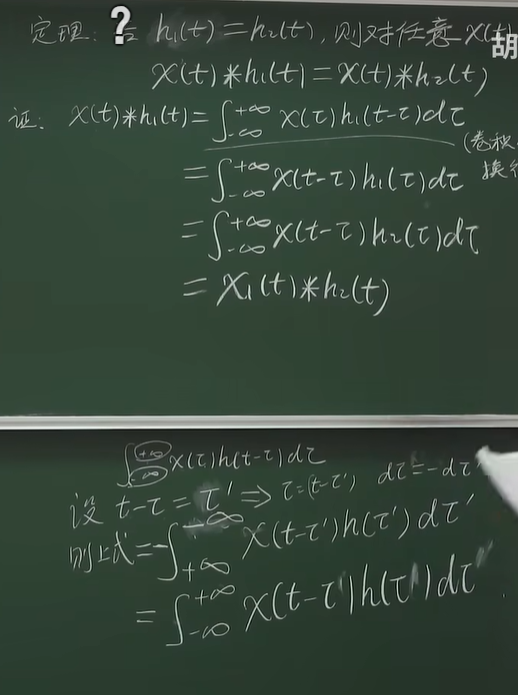 定理: ? 若 h₁(t)=h₂(t), 则对任意 x(t)
胡
x(t)*h₁(t)=x(t)*h₂(t)
证: x(t)*h₁(t)=∫_{-∞}^{+∞} x(τ)h₁(t-τ)dτ
(卷积
换
=∫_{-∞}^{+∞} x(t-τ)h₁(τ)dτ
=∫_{-∞}^{+∞} x(t-τ)h₂(τ)dτ
=x₁(t)*h₂(t)
∫_{-∞}^{+∞} x(τ)h(t-τ)dτ
设 t-τ=τ' ⇒ τ=(t-τ') dτ=-dτ'
则上式=-∫_{+∞}^{-∞} x(t-τ')h(τ')dτ'
=∫_{-∞}^{+∞} x(t-τ')h(τ')dτ'